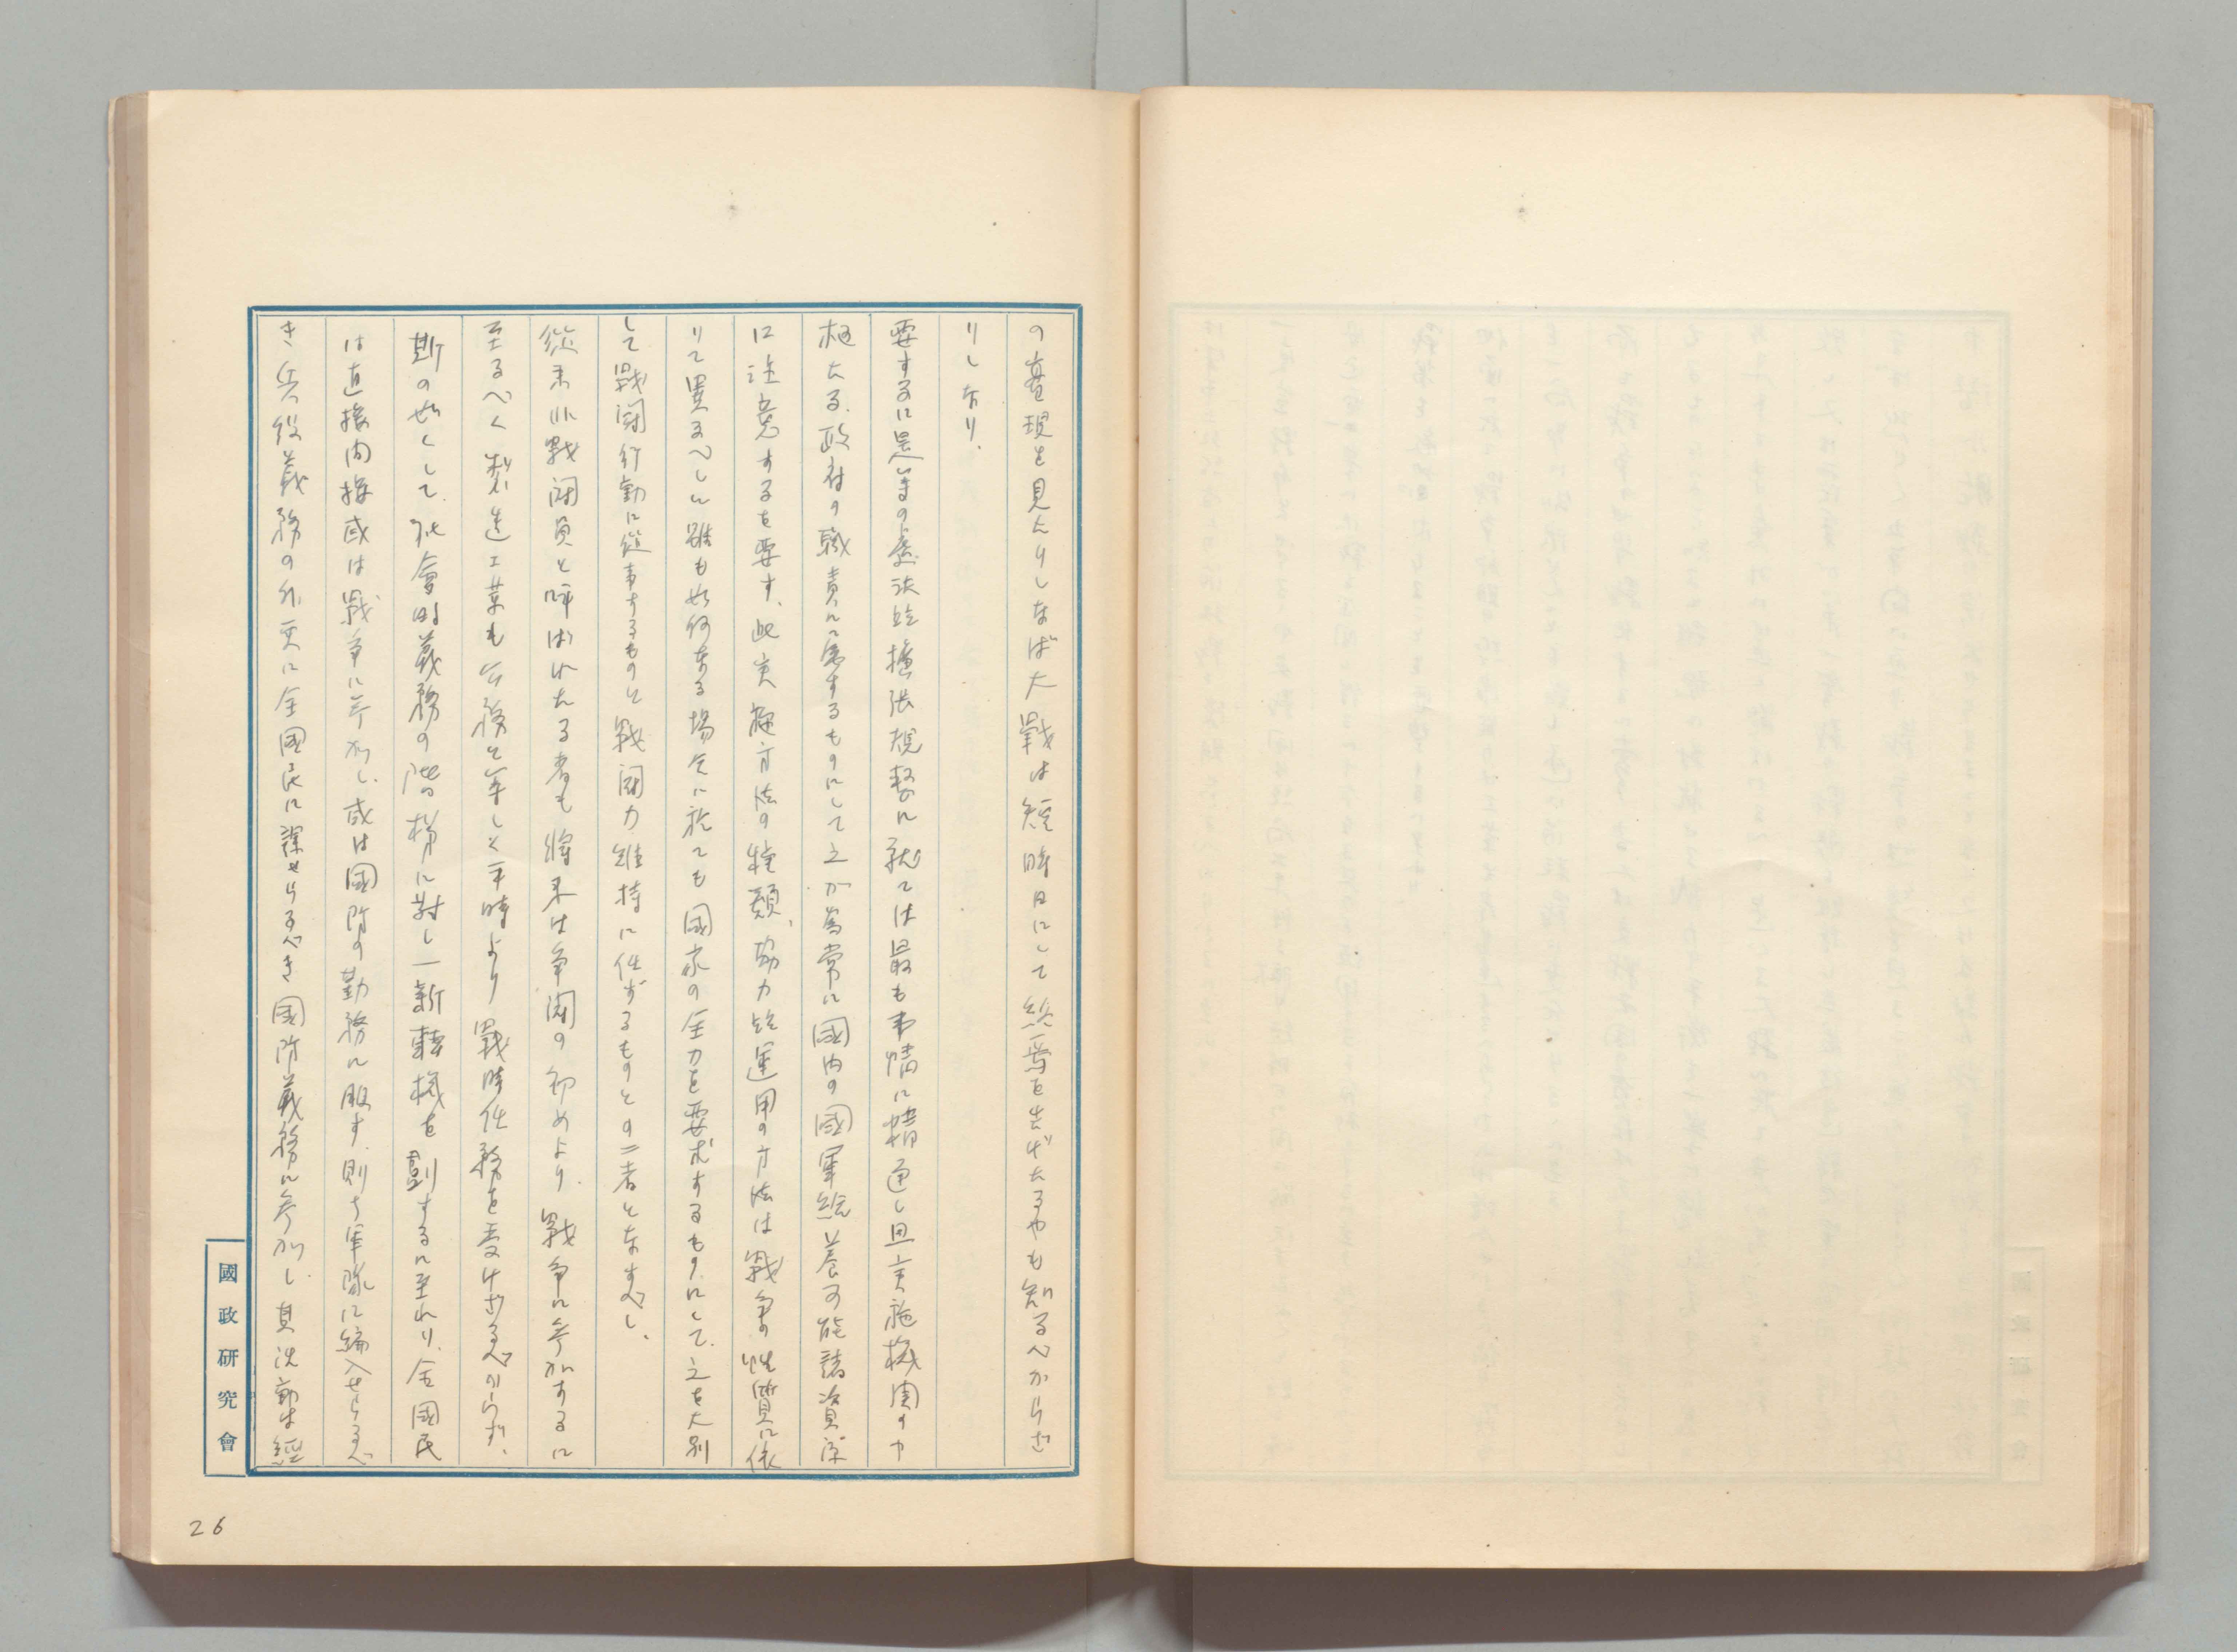 の喜現を見たりしならば大戰は短時日にして終焉を告げたるやも知るべからざ
りしなり.
要するに是等の處法竝擴張規整に就ては最も事情に精通し且実施機関の中
枢たる政府の職責に属するものにして之が為常に國内の國軍給養可能諸資源
に注意するを要す、此実施方法の種類、協力竝運用の方法は戰争の性質に依
りて異るべしと雖も如何なる場合に於ても國家の全力を要求するものにして、之を大別
して戰闘行動に從事するものと戰闘力維持に任ずるものとの二者となすべし、
從来非戰闘員と呼ばれたる者も將来は争闘の初めより、戰争に参加するに
至るべく製造工業も公務と等しく平時より戰時任務を受けざるべからず、
斯の如くして、社會的義務の階梯に對し一新轉機を劃するに至れり、全國民
は直接間接或は戰争に参加し、或は國防の勤務に服す、則ち軍隊に編入せらるべ
き兵役義務の外更に全國民に課せらるべき國防義務に参加し其活動は經
國政研究會
26